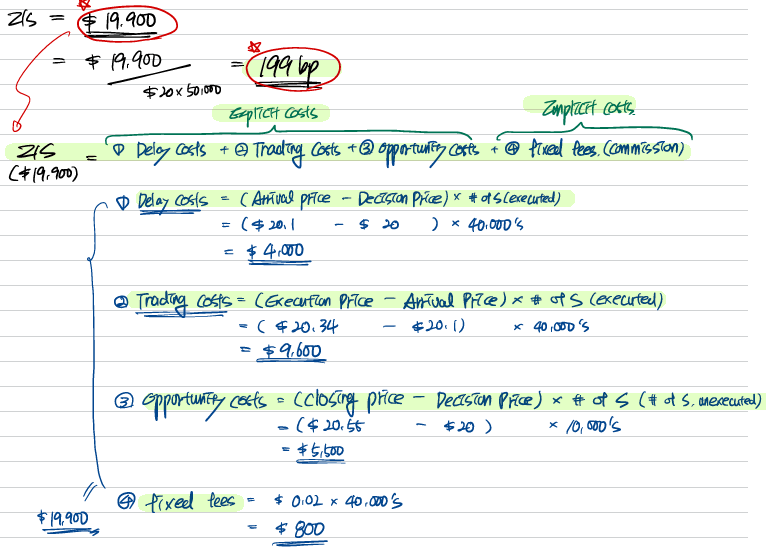 IS = $ 19,900
= $ 19,900 / $20 x 50,000 = 199 bp
Explicit costs Implicit costs.
IS = ① Delay costs + ② Trading costs + ③ opportunity costs + ④ fixed fees. (commission)
($19,900)
① Delay costs = (Arrival price - Decision Price) × # of S (executed)
= ($ 20.1 - $ 20 ) × 40,000's
= $ 4,000
② Trading costs = (Execution Price - Arrival Price) × # of S (executed)
= ( $ 20.34 - $20.1) × 40,000's
= $ 9,600
③ opportunity costs = (closing price - Decision Price) × # of S (# of S. unexecuted)
= ($ 20.55 - $20 ) × 10,000's
= $5,500
④ fixed fees = $ 0.02 × 40,000's
$19,900
= $ 800